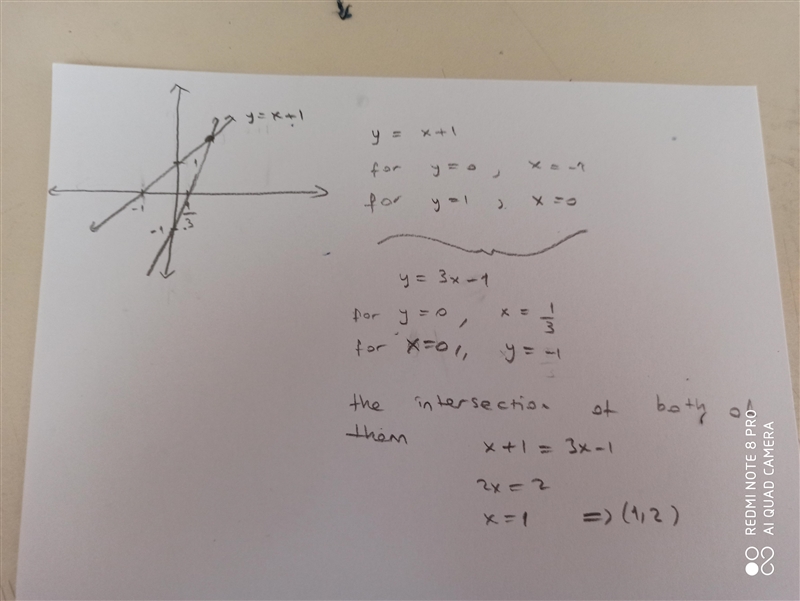 y = x+1
1
-1
1/3
-1
y = x+1
for y=0, x=-1
for y=1, x=0
y = 3x-1
for y=0, x = 1/3
for x=0, y=-1
the intersection of both of
them
x+1 = 3x-1
2x=2
x=1 => (1,2)
REDMI NOTE 8 PRO
AI QUAD CAMERA